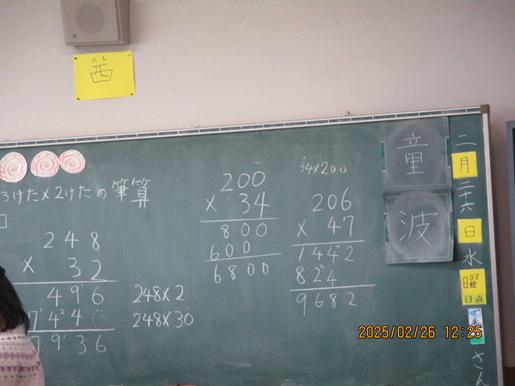 にし
西
3けた×2けたの筆算
248
× 32
496
744
7936
248×2
248×30
200
× 34
800
600
6800
34×200
206
× 47
1442
824
9682
童
波
二月二十六日水曜
日直
さん
2025/02/26 12:25